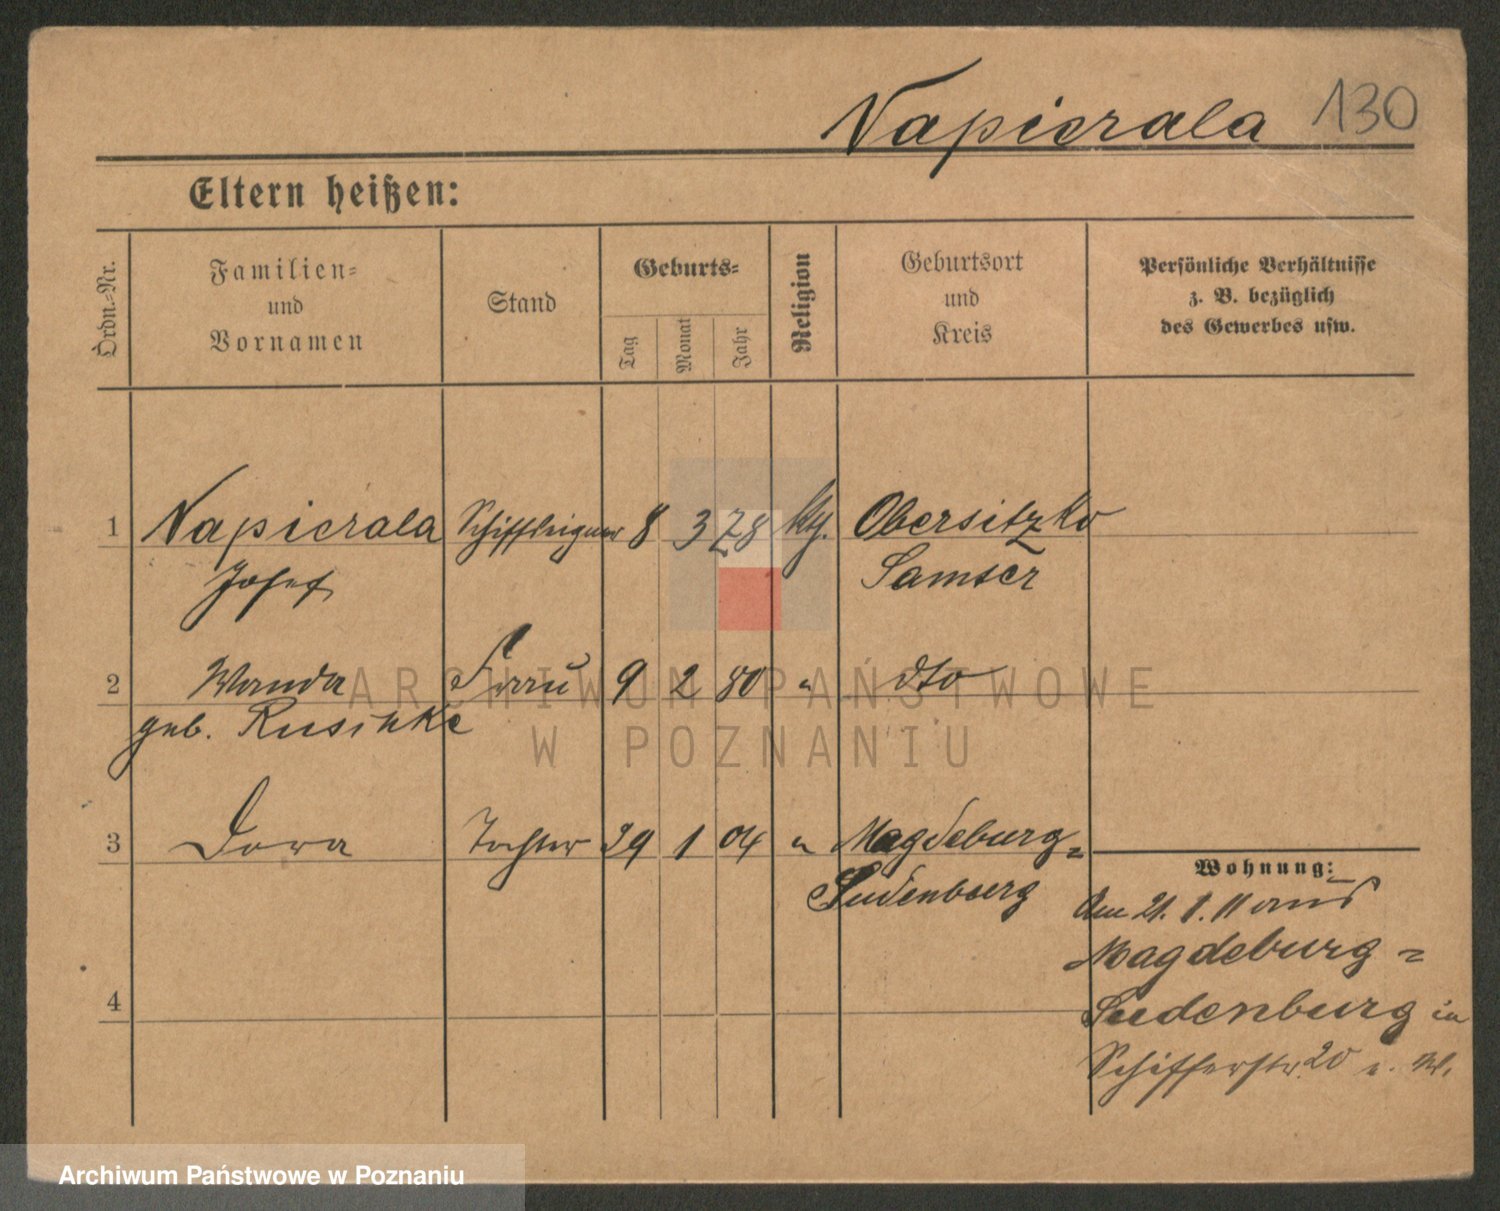 Napierala 130
Eltern heißen:
Ordn.-Nr.
Familien-
und
Vornamen
Stand
Geburts-
Tag
Monat
Jahr
Religion
Geburtsort
und
Kreis
Persönliche Verhältnisse
z. B. bezüglich
des Gewerbes usw.
1 Napierala Schiffseigner 8 3 78 kth. Obersitzko
Josef Samter
2 Wanda Frau 9 2 80 " dto
geb. Rusinke
3 Dora Tochter 29 1 04 " Magdeburg=
Sudenburg
Wohnung:
Am 21. 1. 11 aus
Magdeburg=
Sudenburg in
Schifferstr. 20
4
ARCHIWUM PAŃSTWOWE
W POZNANIU
Archiwum Państwowe w Poznaniu